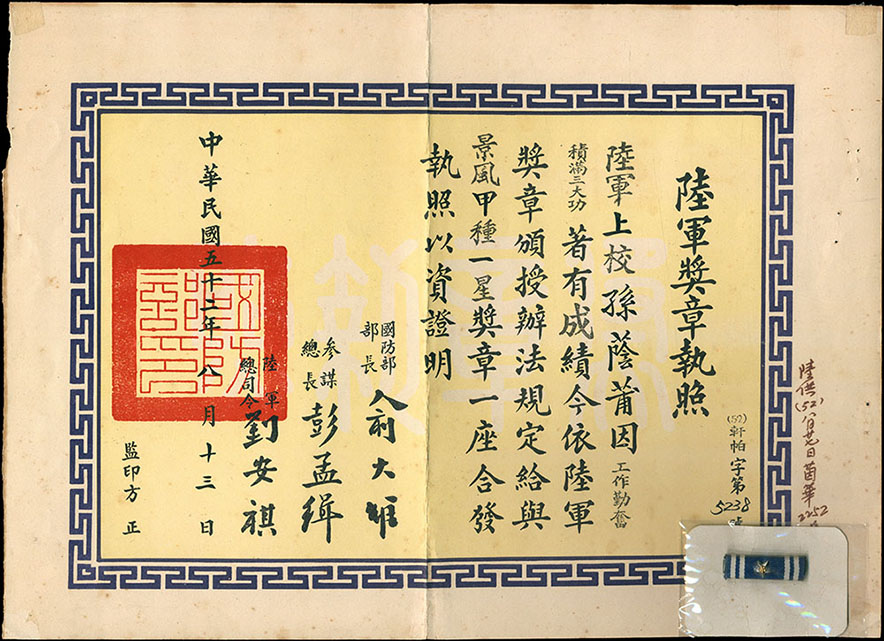 陸軍獎章執照
(52)軒帕字第5238號
陸軍上校孫蔭莆因工作勤奮
積滿三大功著有成績今依陸軍
獎章頒授辦法規定給與
景風甲種一星獎章一座合發
執照以資證明
國防部部長俞大維
參謀總長彭孟緝
陸軍總司令劉安祺
中華民國五十二年八月十三日
監印方正
國防部印
陸供(52)八月廿七日茵華2252